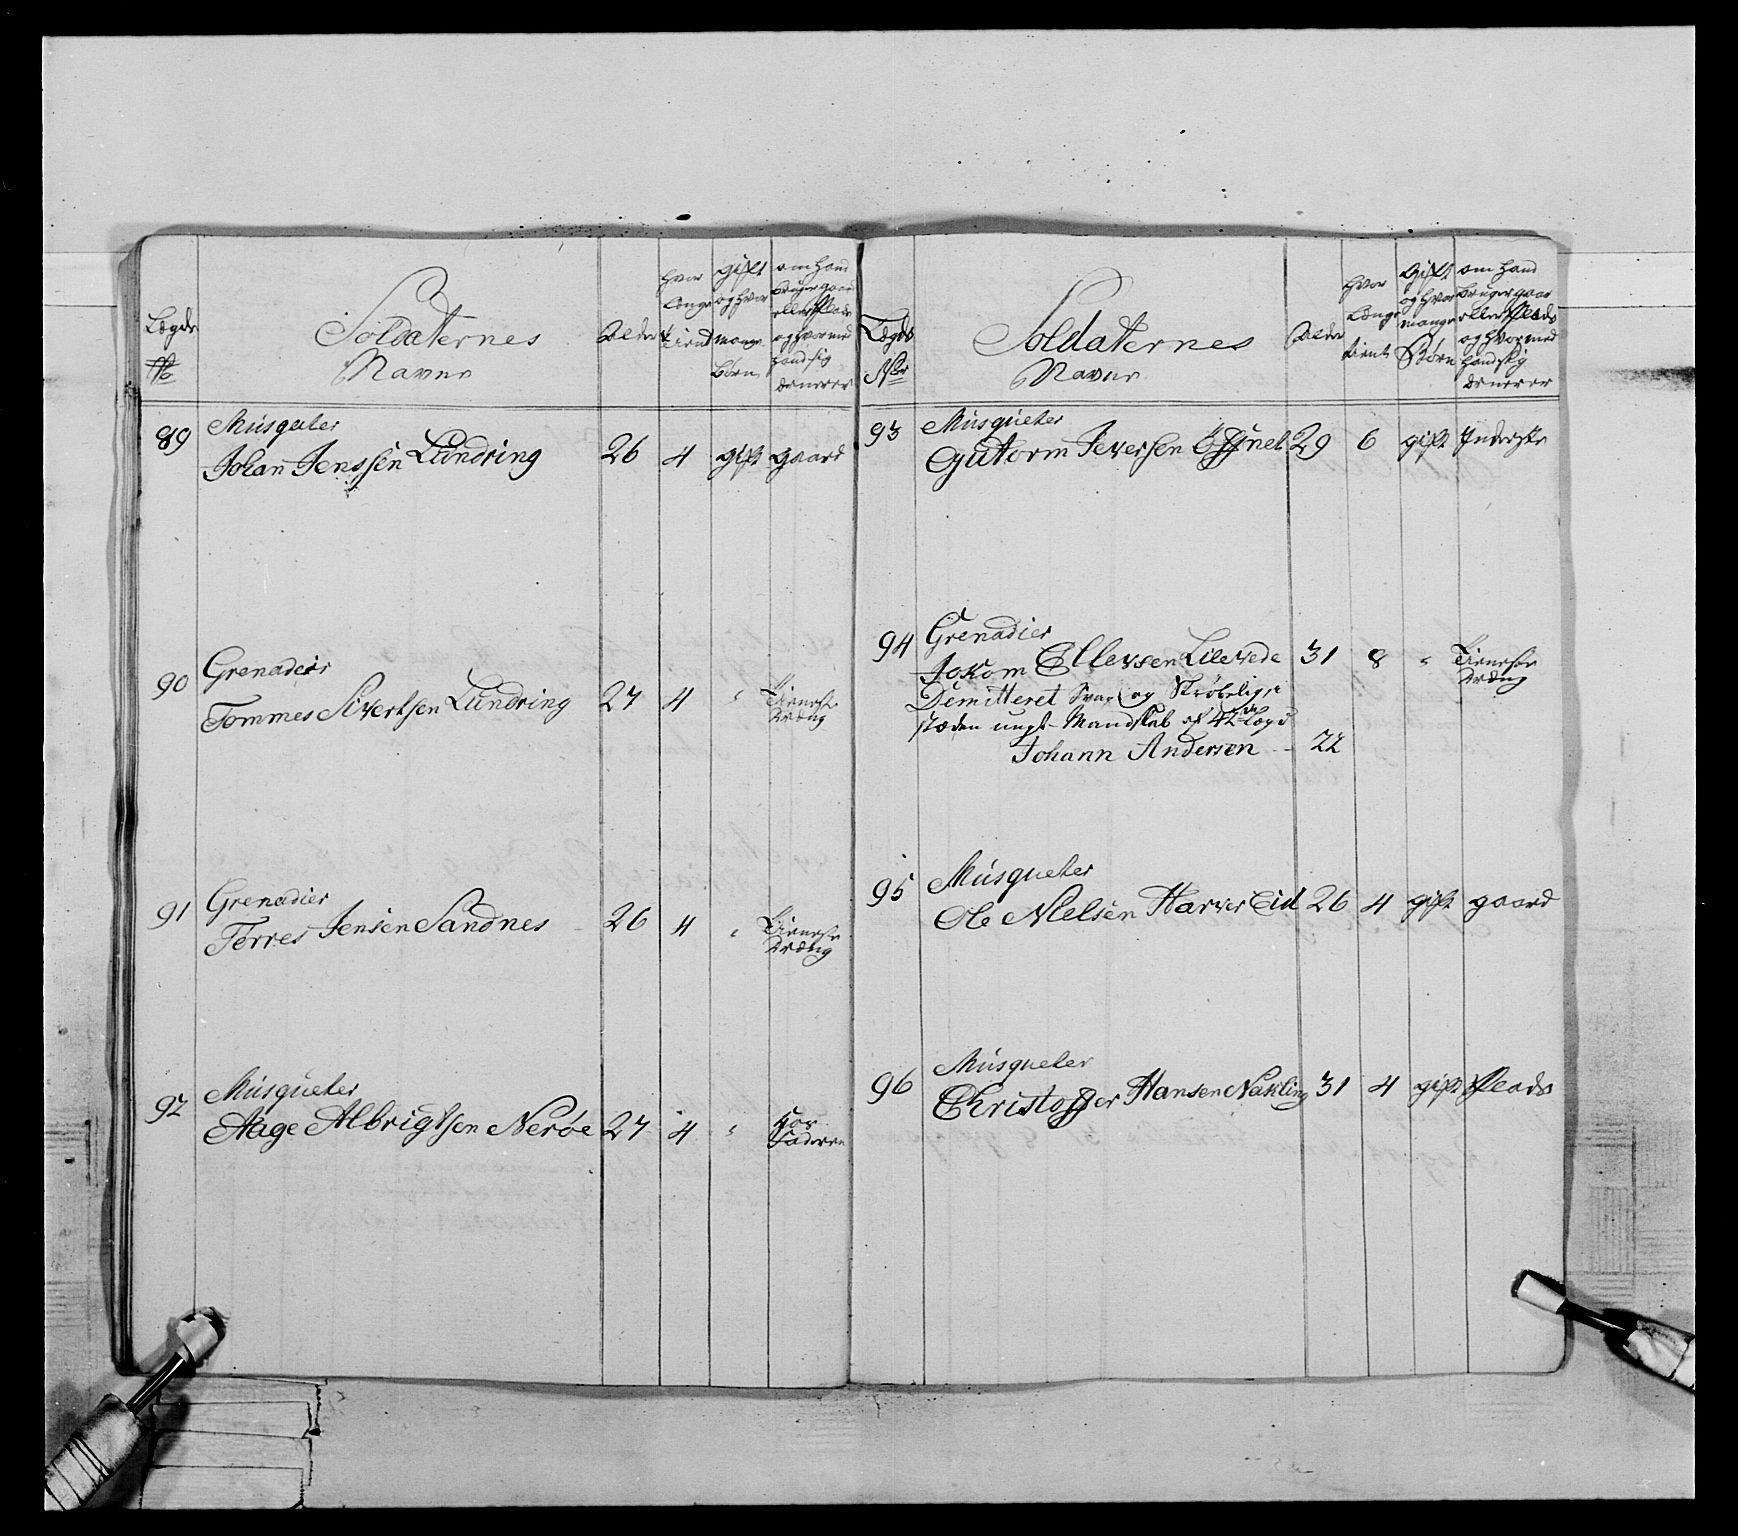 Lægds
No
Soldaternes
Navne
Alder
hvor
længe
tient
gift
og hvor
mange
børn
om hand
bruger gaar
eller Plads
og hvormed
hand sig
ernerer
89
Musqueter
Johan Jenssen Lundring 26 4 gift gaard
90
Grenadeir
Tommes Sivertsen Lundring 27 4 " Tieneste
dræng
91
Grenadier
Torres Jensen Sandnes 26 4 " Tieneste
dræng
92
Musqueter
Aage Albrigtsen Nerøe 27 4 " hos
Faderen
Lægds
Nor
Soldaternes
Navne
Alder
hvor
længe
tient
Gift
og hvor
mange
Børn
om hand
bruger gaar
eller Plads
og hvormed
hand sig
ernerer
93
Musqueter
Gutorm Iversen 29 6 gift Inderste
94
Grenadier
Jokom Ellevsen Lilevede 31 8 " Tieneste
dræng
Demitteret Svag og Skrøbelig, i
stæden ungt Mandskab af 42de Lægd
Johann Andersen 22
95
Musqueter
Ole Nielsen Harver Eid 26 4 gift gaard
96
Musqueter
Christoffer Hansen Nakling 31 4 gift Plads